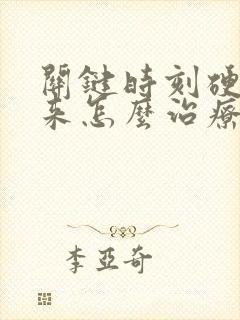 關鍵時刻硬
来怎麼治療
李亚奇